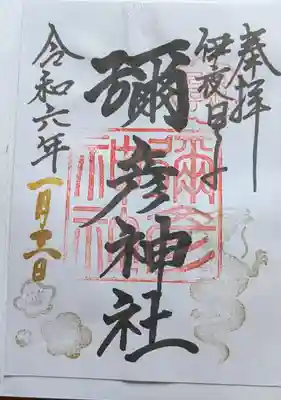 奉拝
伊夜日子
彌彦神社
令和六年
一月